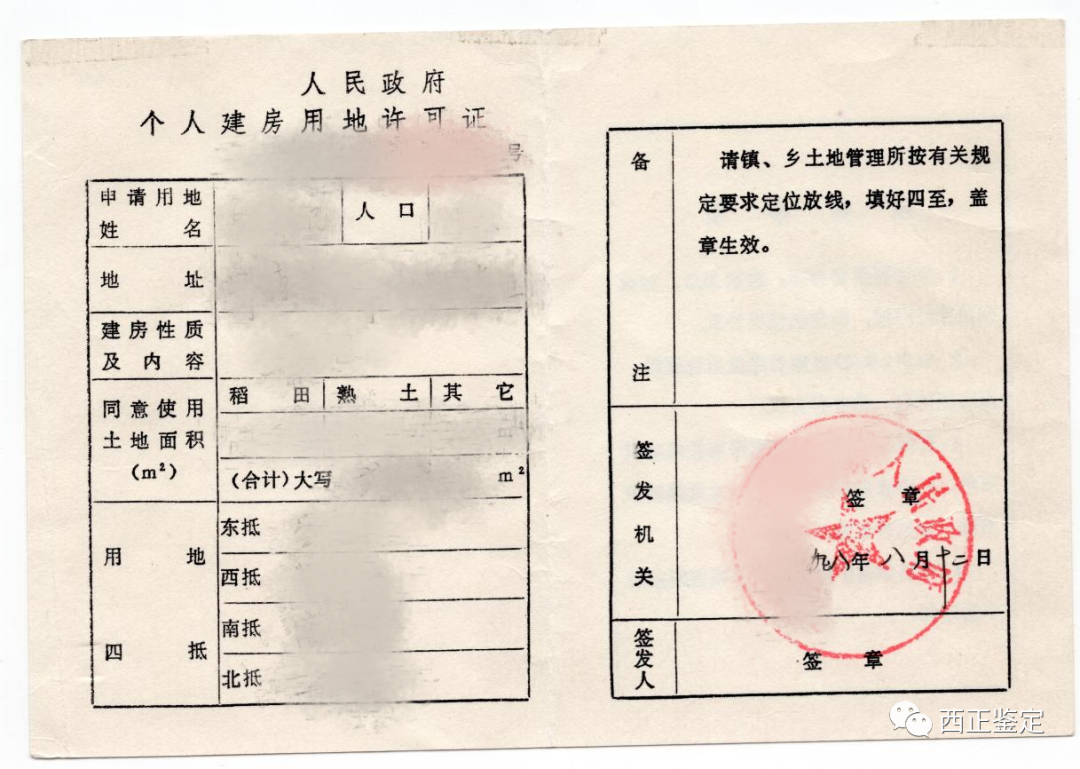 人民政府
个人建房用地许可证
号
申请用地
姓名
人口
地址
建房性质
及内容
同意使用
土地面积
(m²)
稻田 熟土 其它
m²
(合计)大写 m²
用地
四抵
东抵
西抵
南抵
北抵
备注
请镇、乡土地管理所按有关规
定要求定位放线，填好四至，盖
章生效。
签发机关
人民政府
签章
九八年八月十二日
签发人
签章
西正鉴定